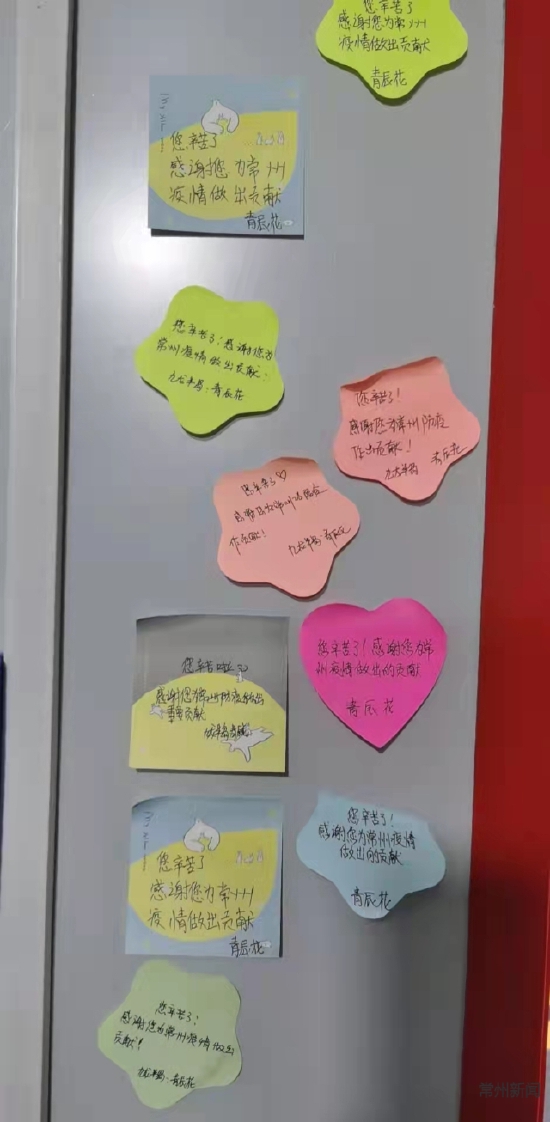 您辛苦了
感谢您为常州
疫情做出贡献
青辰花
您辛苦了
感谢您为常州
疫情做出贡献
青辰花
您辛苦了!感谢您为
常州疫情做出贡献!
青辰花
您辛苦了!
感谢您为常州防疫
作出贡献!
青辰花
您辛苦了♡
作贡献!
您辛苦了!感谢您为常
州疫情做出的贡献
青辰花
您辛苦啦
感谢您
贡献
您辛苦了!
感谢您为常州疫情
做出的贡献
青辰花
您辛苦了
感谢您为常州
疫情做出贡献
青辰花
您辛苦了!
感谢您为常州疫情做出
贡献!
青辰花
常州新闻